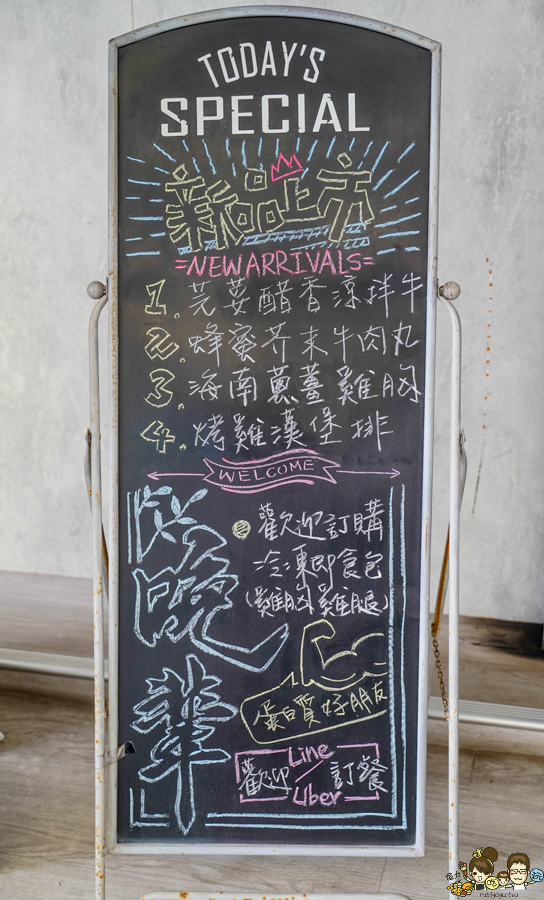 TODAY'S
SPECIAL
新品上市
=NEW ARRIVALS=
1. 芫荽醋香涼拌牛
2. 蜂蜜芥末牛肉丸
3. 海南蔥薑雞胸
4. 烤雞漢堡排
WELCOME
歡迎訂購
冷凍即食包
(雞胸 雞腿)
晚輩
蛋白質好朋友
歡迎 Line / Uber 訂餐